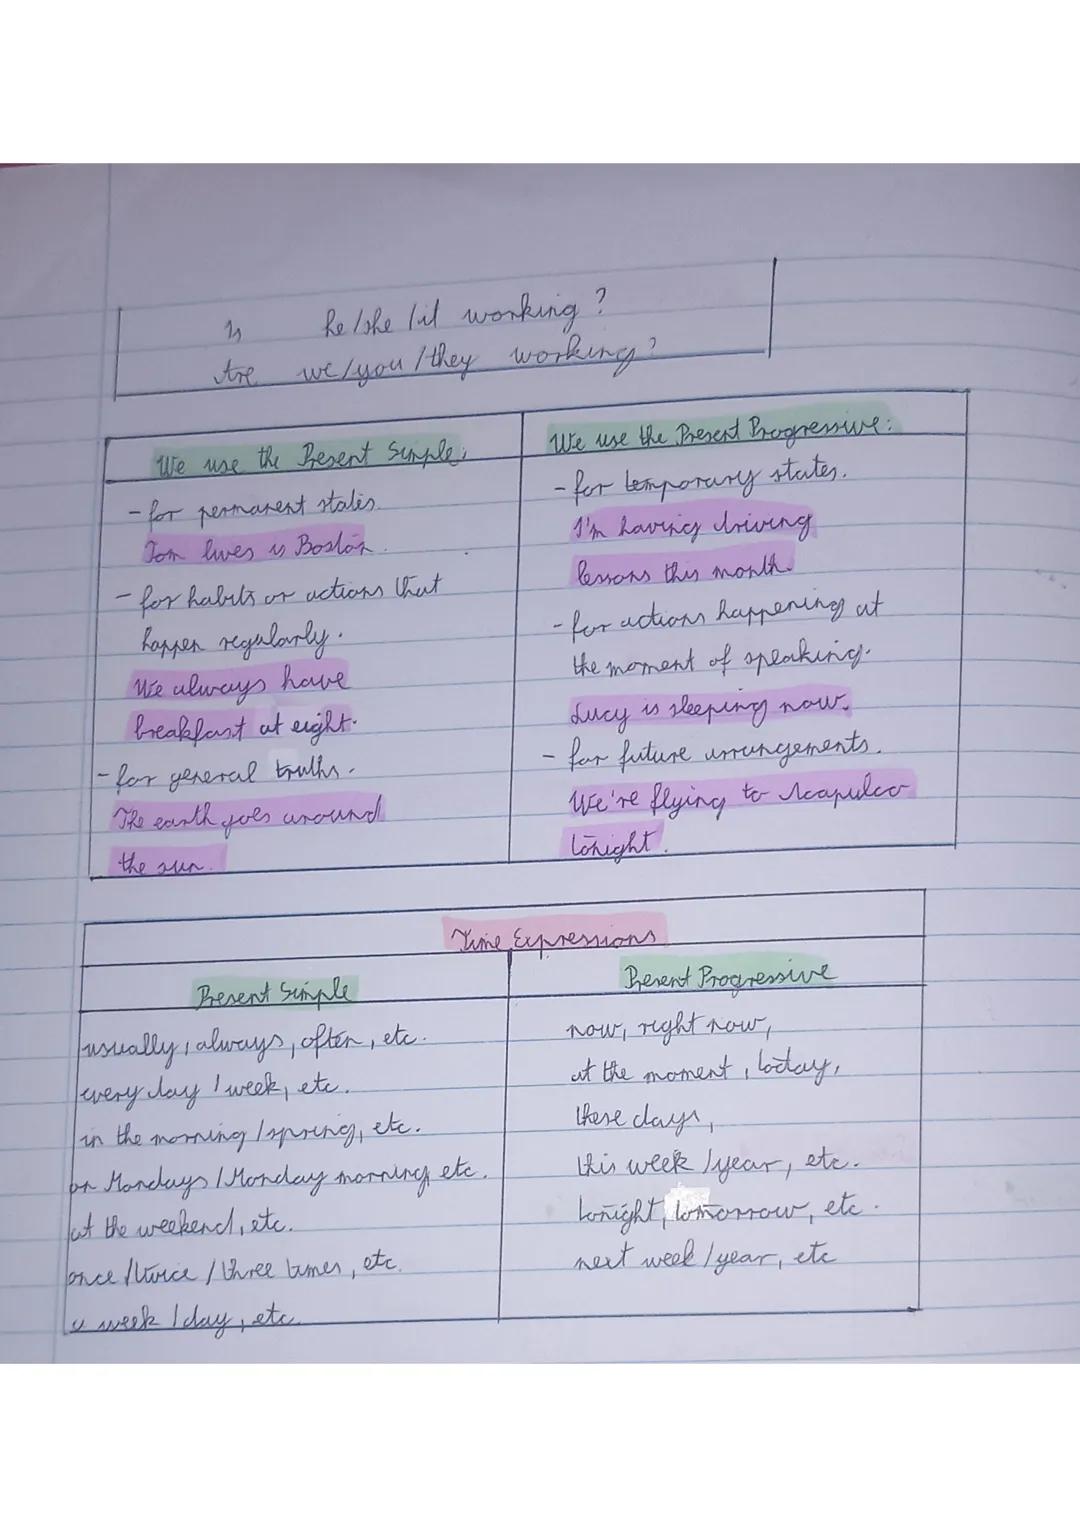 Is he/she/it working?
Are we/you/they working?
We use the Present Simple:
- for permanent states.
Tom lives is Boston.
- for habits or actions that
happen regularly.
We always have
breakfast at eight.
- for general truths.
The earth goes around
the sun.
We use the Present Progressive:
- for temporary states.
I'm having driving
lessons this month.
- for actions happening at
the moment of speaking.
Lucy is sleeping now.
- for future arrangements.
We're flying to Acapulco
tonight.
Time Expressions
Present Simple
usually, always, often, etc.
every day / week, etc.
in the morning / spring, etc.
on Mondays / Monday morning, etc.
at the weekend, etc.
once / twice / three times, etc.
a week / day, etc.
Present Progressive
now, right now,
at the moment, today,
these days,
this week / year, etc.
tonight, tomorrow, etc.
next week / year, etc